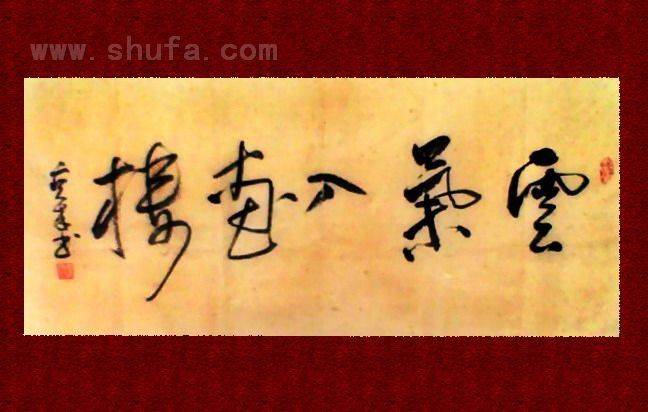 www.shufa.com
雲氣入畫樓